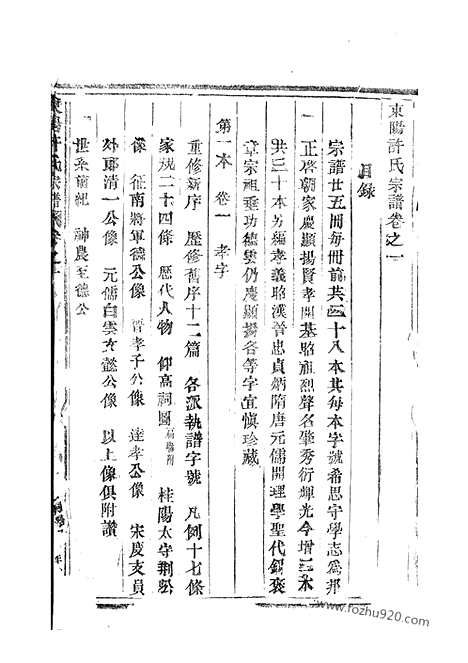 東陽許氏宗譜卷之一
目錄
宗譜廿五冊每冊前共四十八本其每本字號希思守學志為邦
正啓朝家慶顯揚賢孝開基昭祖烈聲名肇秀衍輝光今增三本
共三十本另編孝義昭漢晉忠貞炳隋唐元儒開理學聖代錫褒
章宗祖垂功德雲仍慶顯揚各等字宜慎珍藏
第一本 卷一 孝字
重修新序 歷修舊序十二篇 各派執譜字號 凡例十七條
家規二十四條 歷代人物 仰高詞圖 桂陽太守荆公
像 征南將軍德公像 晉孝子公像 達孝公像 宋度支員
外郎清一公像 元儒白雲文懿公像 以上像俱附讚
世系前紀 神農至德公
東陽許氏宗譜 卷之一
www.fozhu920.com